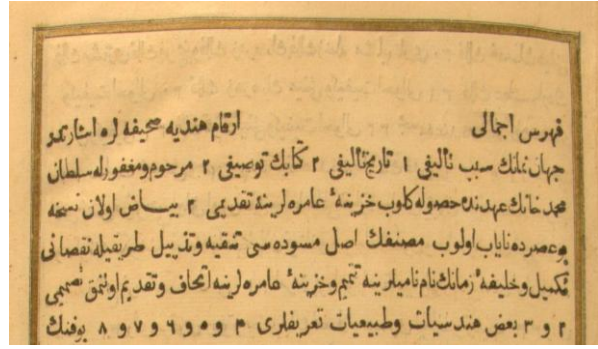 فهرس اجمالی ارقام هندیه صحیفه لره اشارتدر
جهان نمانك سبب تالیفی ۱ تاریخ تالیفی ۲ كتابك توصیفی ۲ مرحوم ومغفور له سلطان
محمد خانك عهدنده حصوله كلوب خزینهٔ عامره لرینه تقدیمی ۲ بیاض اولان نسخه
بو عصرده نایاب اولوب مصنفك اصل مسوده سی تنقیه وتذییل طریقیله نقصانی
تكمیل وخلیفهٔ زمانك نام نامیلرینه تتمیم وخزینهٔ عامره لرینه اتحاف وتقدیم اولنمق تصمیمی
۲ و ۳ بعض هندسیات وطبیعیات تعریفلری ۴ و ٥ و ۶ و ۷ و ۸ بوفنك